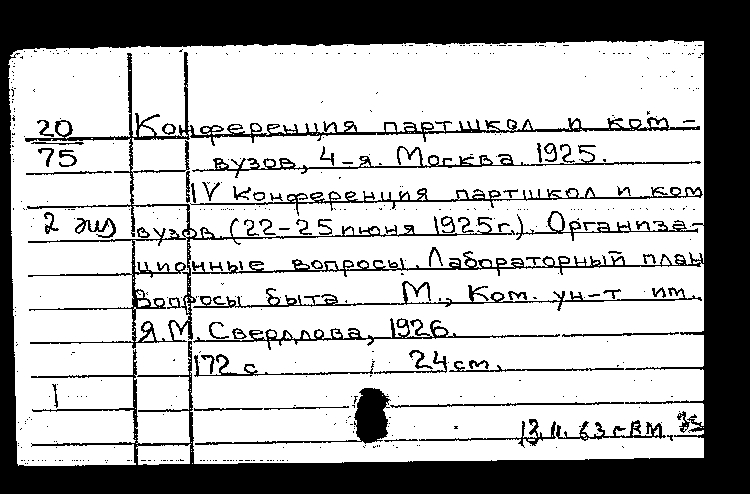 20 Конференция партшкол и ком-
75 вузов, 4-я. Москва. 1925.
IV Конференция партшкол и ком
2 экз вузов (22-25 июня 1925г.). Организа-
ционные вопросы. Лабораторный план
Вопросы быта. М., Ком. ун-т им.
Я.М. Свердлова, 1926.
172 с. 24 см.